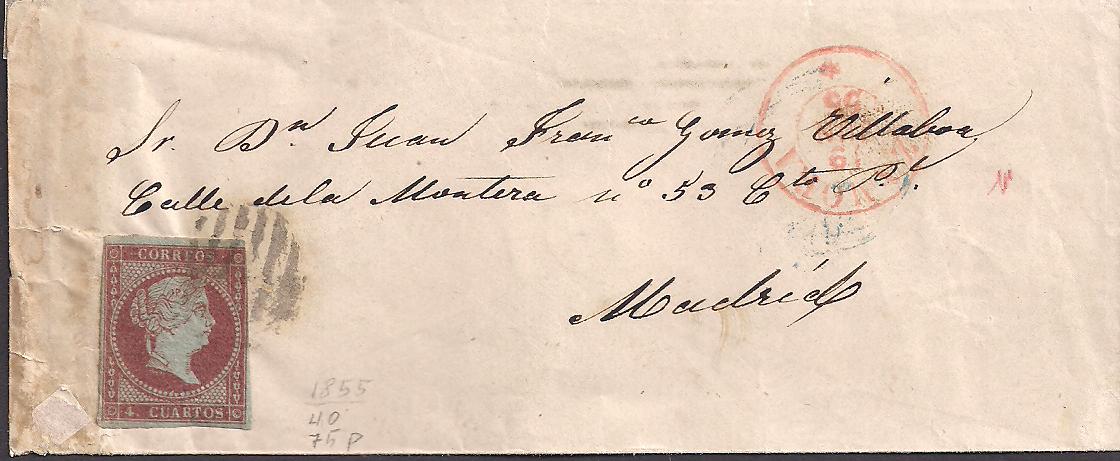 Sr. Dn. Juan Franco Gomez Villaboa
Calle de la Montera nº 53 Cto Pl.
Madrid
CORREOS
4 CUARTOS
1855
40
75 P